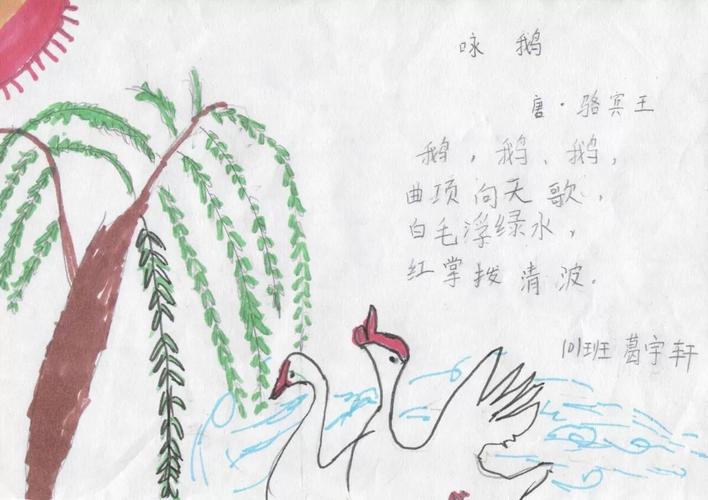 咏 鹅
唐·骆宾王
鹅，鹅、鹅，
曲项向天歌，
白毛浮绿水，
红掌拨清波。
101班 葛宇轩